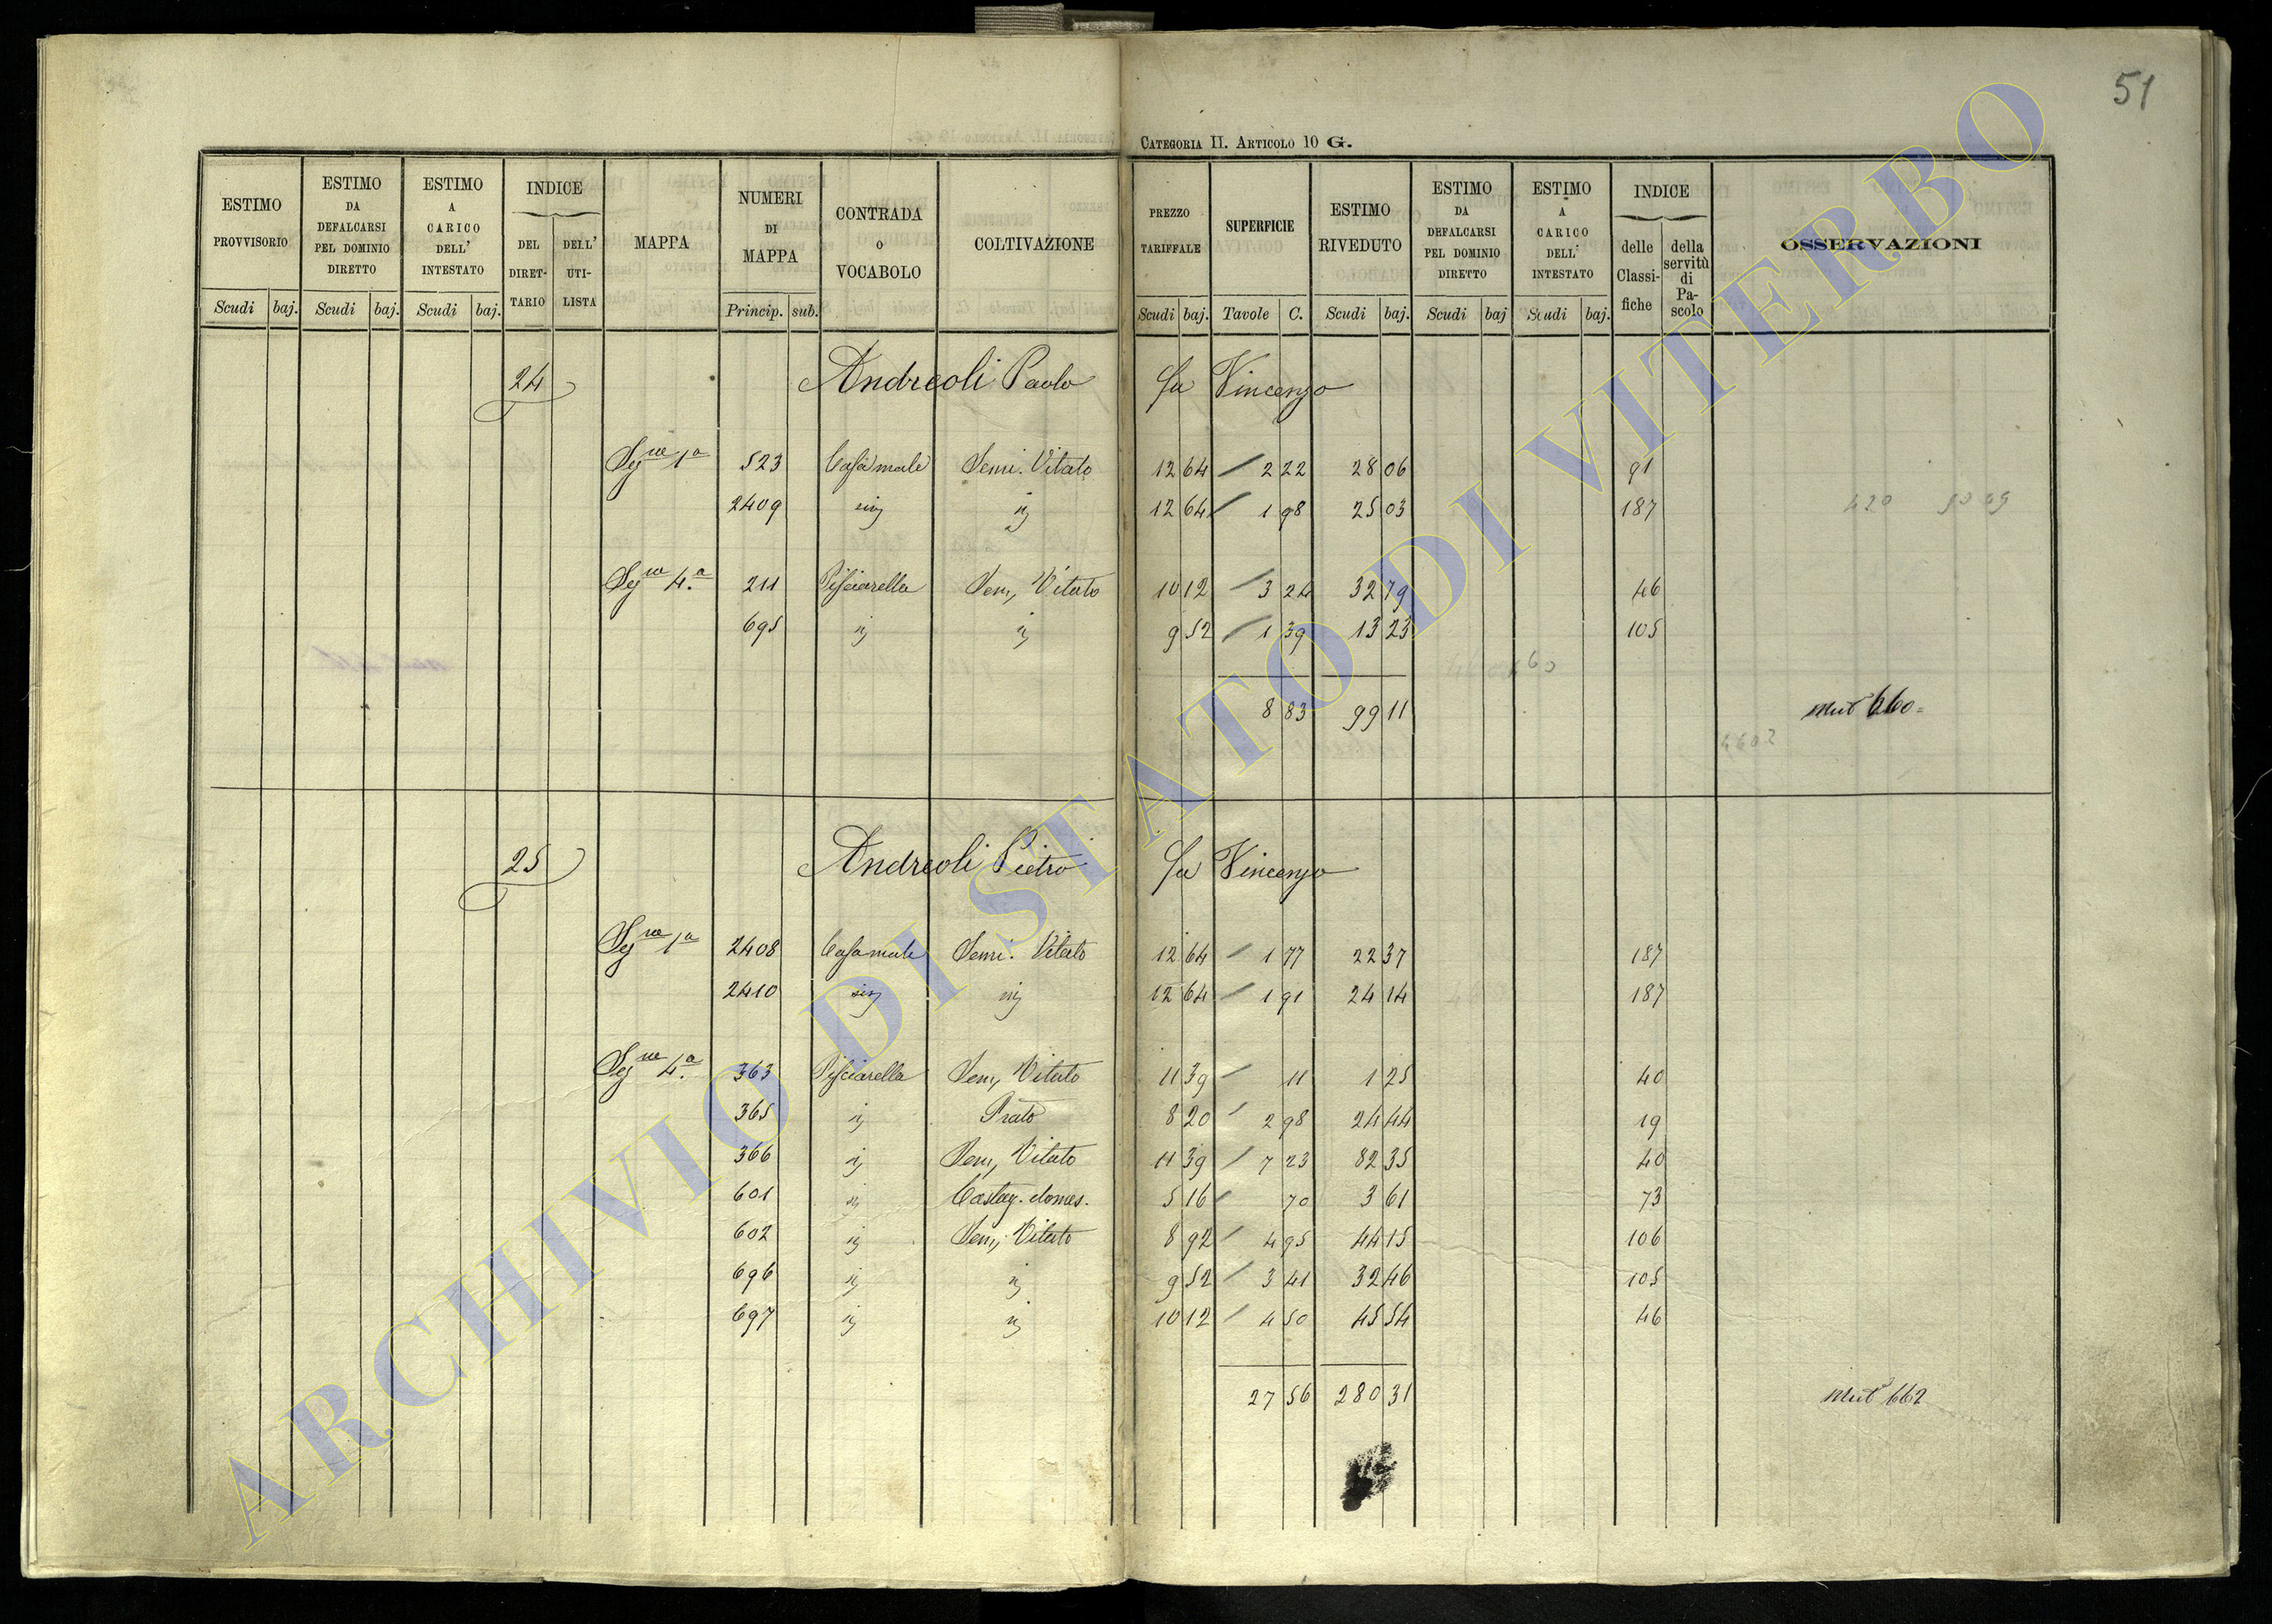 51
CATEGORIA II. ARTICOLO 10 G.
ESTIMO PROVVISORIO | ESTIMO DA DEFALCARSI PEL DOMINIO DIRETTO | ESTIMO A CARICO DELL' INTESTATO | INDICE DEL DIRETTARIO | DELL' UTILISTA | MAPPA | NUMERI DI MAPPA | CONTRADA O VOCABOLO | COLTIVAZIONE | PREZZO TARIFFALE | SUPERFICIE | ESTIMO RIVEDUTO | ESTIMO DA DEFALCARSI PEL DOMINIO DIRETTO | ESTIMO A CARICO DELL' INTESTATO | INDICE delle Classifiche | della servitù di Pascolo | OSSERVAZIONI
Scudi baj. Scudi baj. Scudi baj. Princip. sub. Scudi baj. Tavole C. Scudi baj. Scudi baj Scudi baj.
24 Andreoli Paolo fu Vincenzo
Segne 1a 523 Casamale Semi. Vitato 12 64 / 2 22 28 06 91
2409 sim ij 12 64 / 1 98 25 03 187
420 50 09
Segne 4.a 211 Pisciarella Sem, Vitato 10 12 / 3 24 32 79 46
695 ij ij 9 52 / 1 39 13 23 105
8 83 99 11 Mut 660=
4602
25 Andreoli Pietro fu Vincenzo
Segne 1a 2408 Casamale Semi. Vitato 12 64 / 1 77 22 37 187
2410 sim ij 12 64 / 1 91 24 14 187
Segne 4.a 363 Pisciarella Sem, Vitato 11 39 / 11 1 25 40
365 ij Prato 8 20 / 2 98 24 44 19
366 ij Sem, Vitato 11 39 / 7 23 82 35 40
601 ij Castag. domes. 5 16 / 70 3 61 73
602 ij Sem, Vitato 8 92 / 4 95 44 15 106
696 ij ij 9 52 / 3 41 32 46 105
697 ij ij 10 12 / 4 50 45 54 46
27 56 280 31 Mut 662
ARCHIVIO DI STATO DI VITERBO